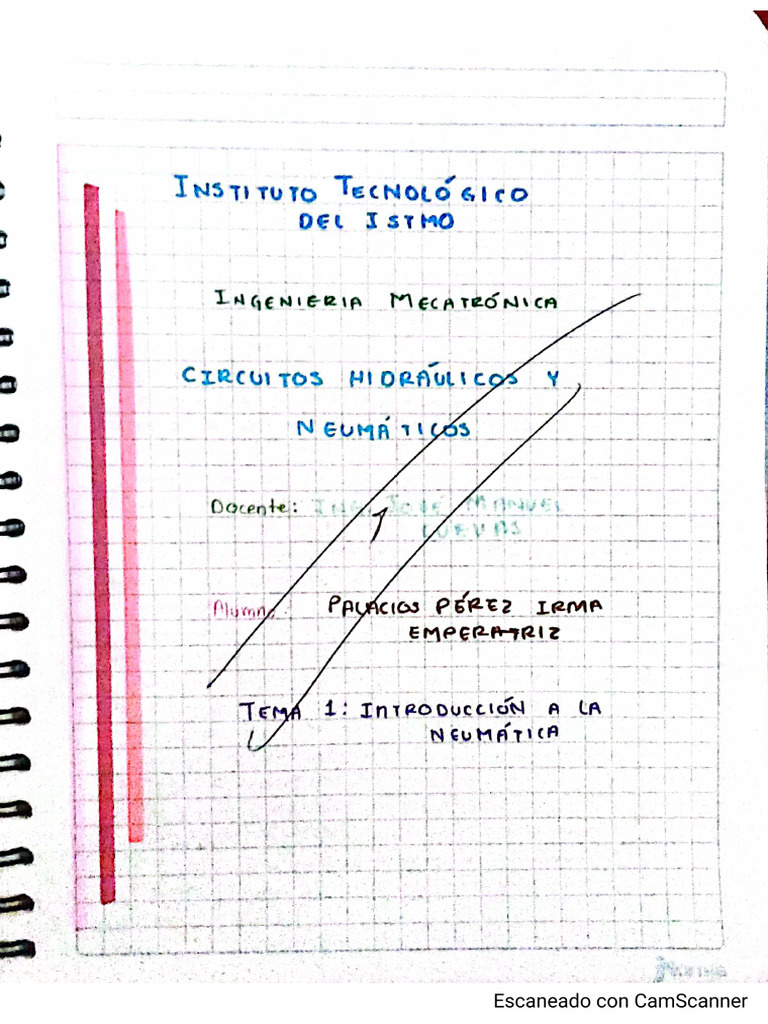 INSTITUTO TECNOLÓGICO
DEL ISTMO
INGENIERIA MECATRÓNICA
CIRCUITOS HIDRAÚLICOS Y
NEUMÁTICOS
Docente: ING. JOSÉ MANUEL
CUEVAS
Alumna: PALACIOS PÉREZ IRMA
EMPERATRIZ
TEMA 1: INTRODUCCIÓN A LA
NEUMÁTICA
Escaneado con CamScanner